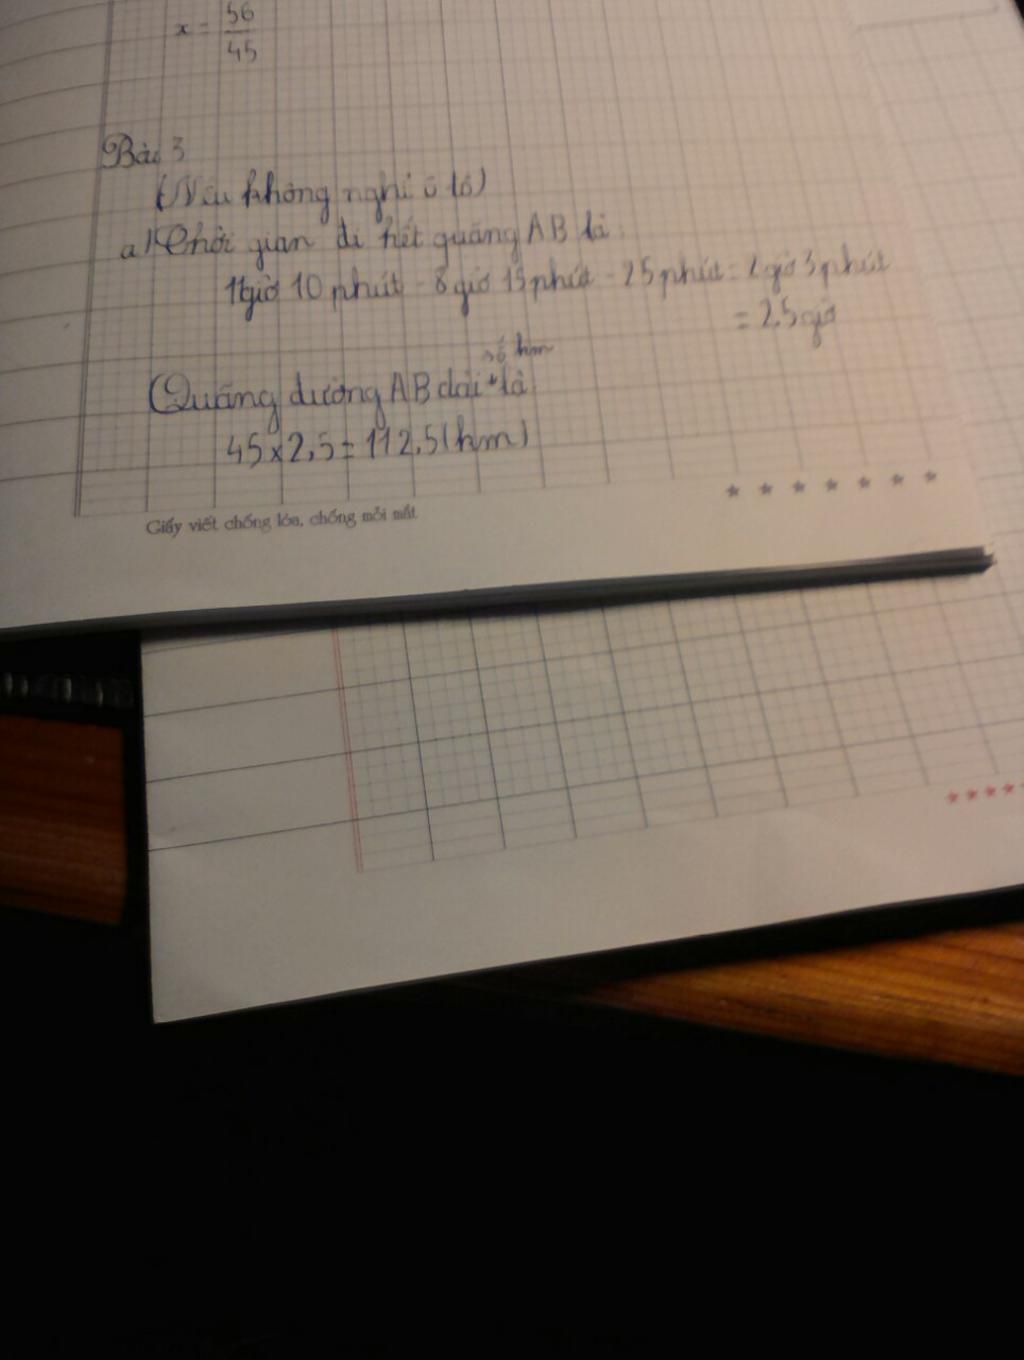 x = 56/45
Bài 3
(Nếu không nghỉ ô tô)
a) Thời gian đi hết quãng AB là:
11giờ 10 phút - 8 giờ 15 phút - 25 phút = 2 giờ 3 phút
= 2,5 giờ
số km
Quãng đường AB dài là
45 x 2,5 = 112,5 (km)
Giấy viết chống lóa, chống mỏi mắt